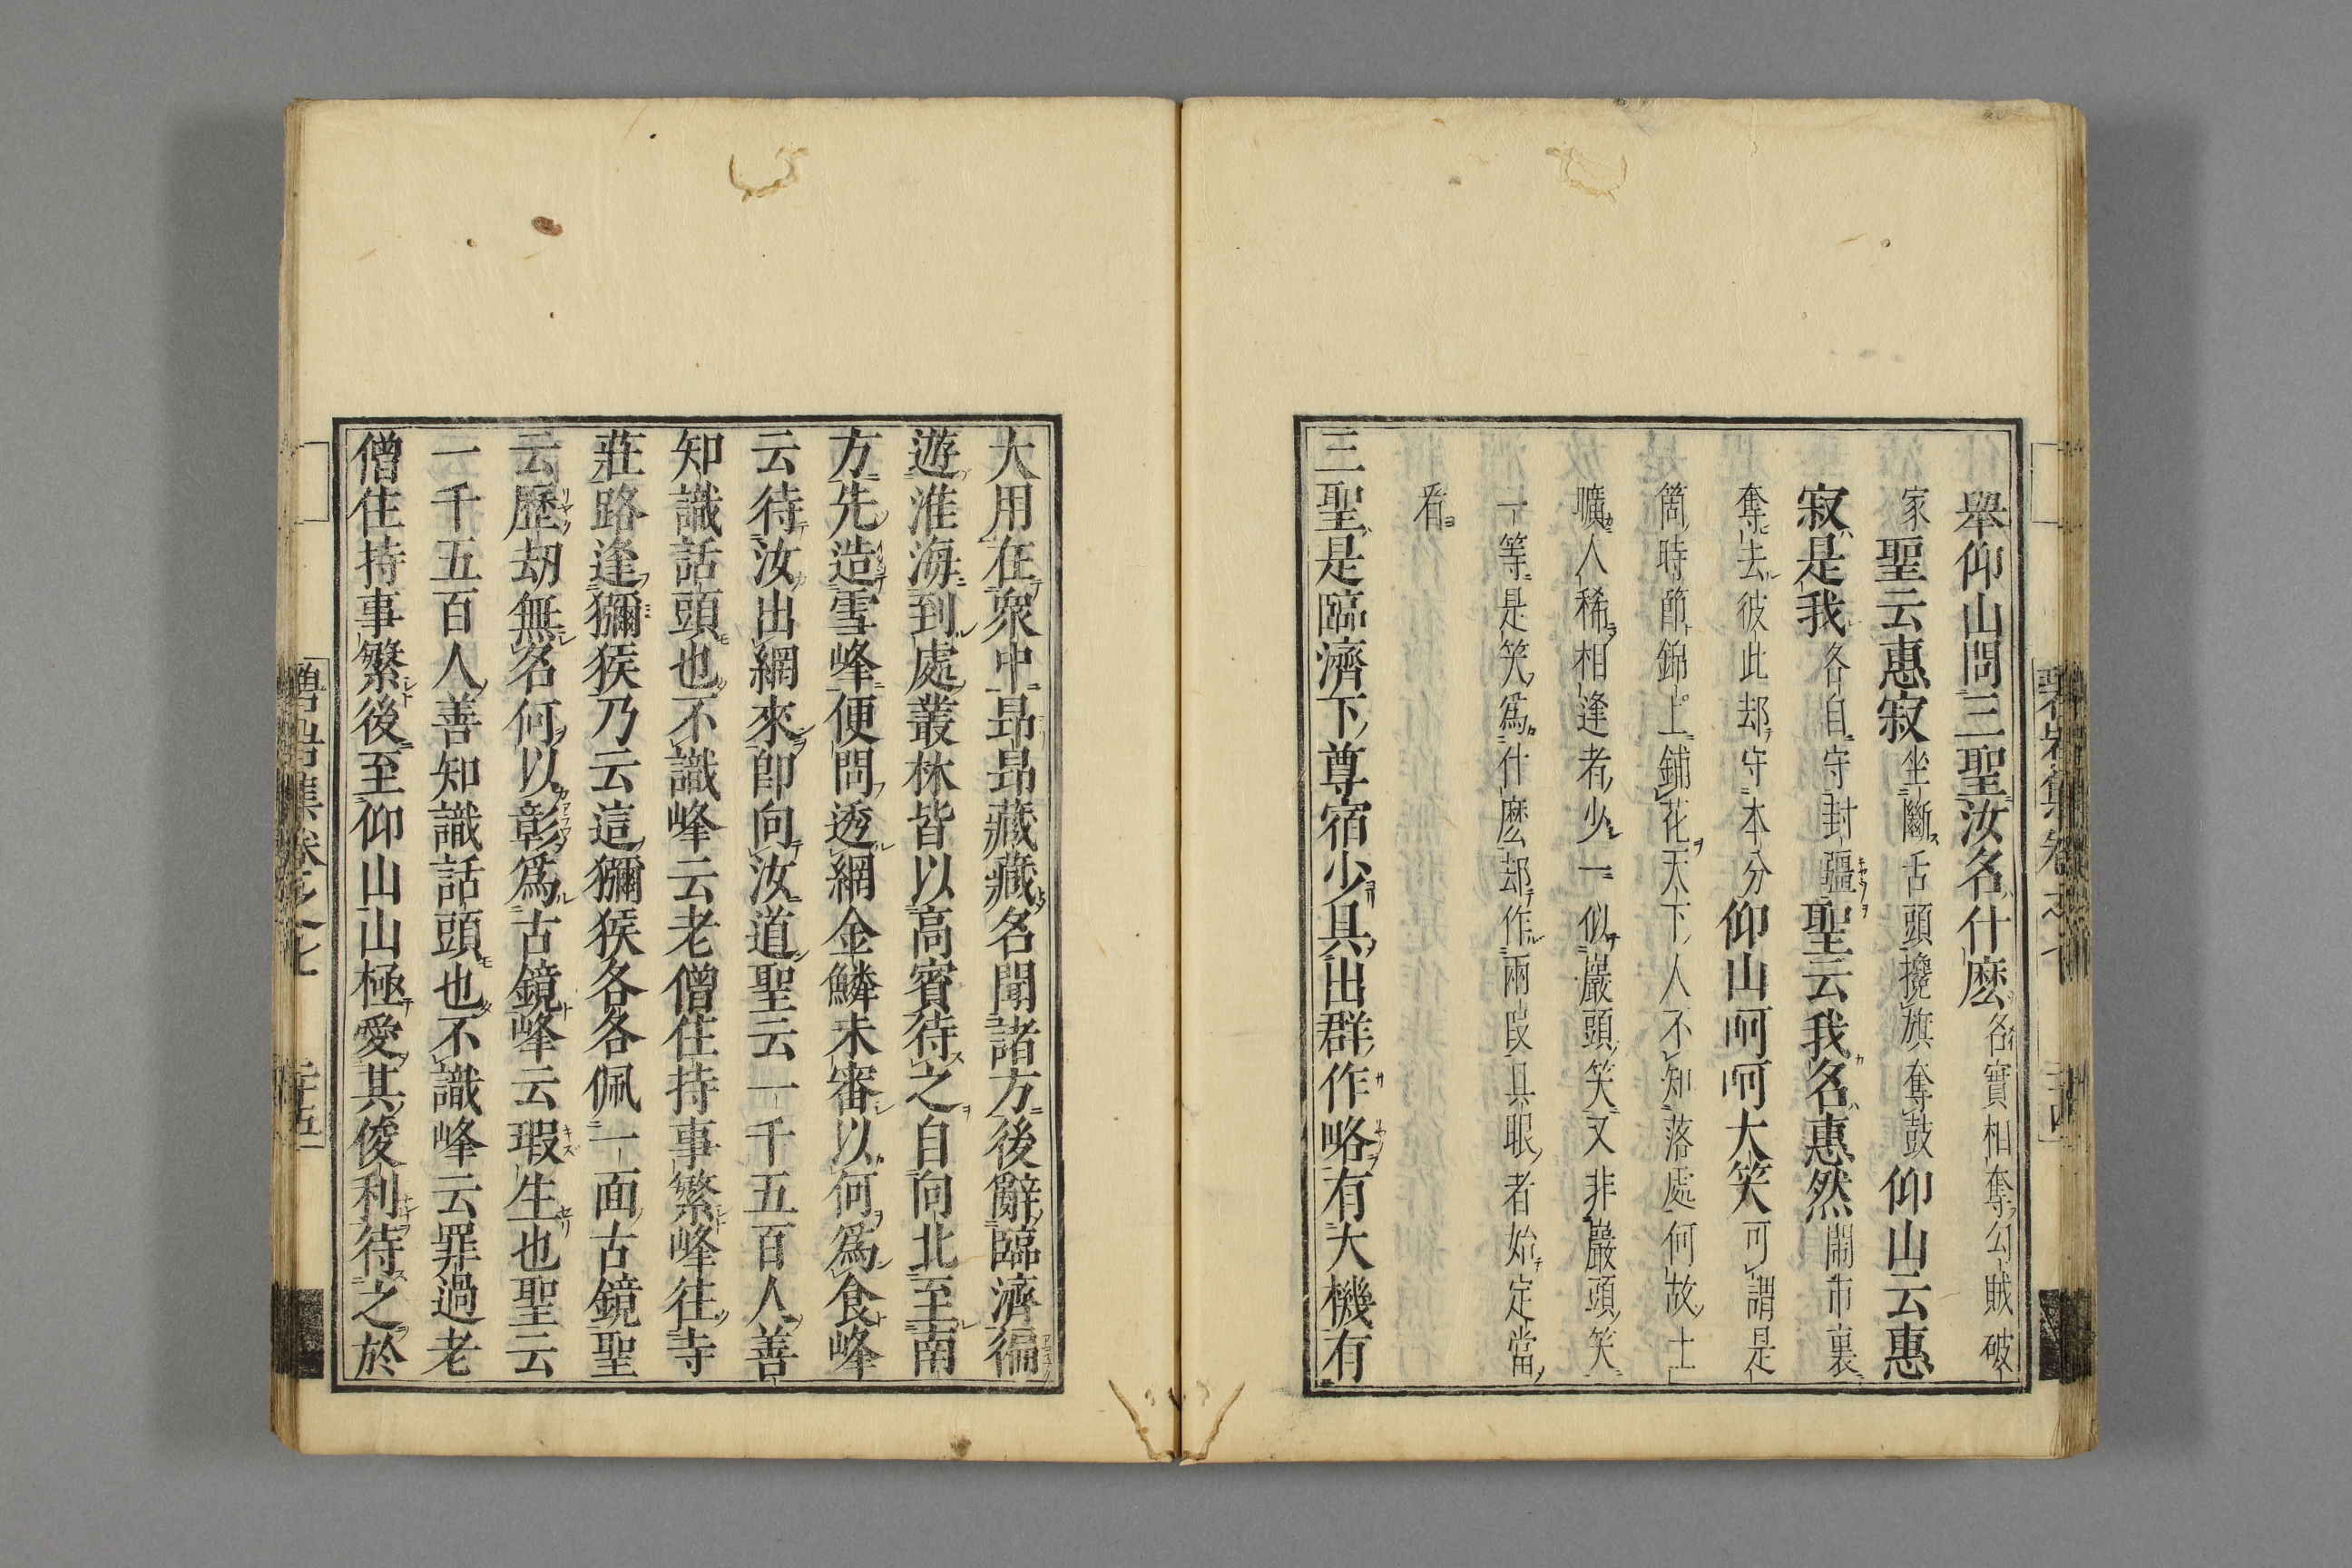 舉仰山問三聖汝名什麽名實相奪勾賊破
家聖云惠寂坐斷舌頭攙旗奪鼓仰山云惠
寂是我各自守封疆聖云我名惠然鬧市裏
奪去彼此却守本分仰山呵呵大笑可謂是
箇時節錦上鋪花天下人不知落處何故土
曠人稀相逢者少一似巖頭笑又非巖頭笑
一等是笑爲什麽却作兩段具眼者始定當
看
三聖是臨濟下尊宿少具出群作略有大機有
大用在衆中昂昂藏藏名聞諸方後辭臨濟徧
遊淮海到處叢林皆以高賓待之自向北至南
方先造雪峰便問透網金鱗未審以何爲食峰
云待汝出網來卽向汝道聖云一千五百人善
知識話頭也不識峰云老僧住持事繁峰往寺
莊路逢獼猴乃云這獼猴各各佩一面古鏡聖
云歷劫無名何以彰爲古鏡峰云瑕生也聖云
一千五百人善知識話頭也不識峰云罪過老
僧住持事繁後至仰山山極愛其俊利待之於